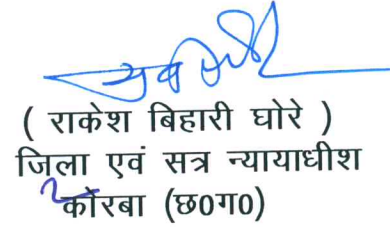 ( राकेश बिहारी घोरे )
जिला एवं सत्र न्यायाधीश
कोरबा (छ0ग0)